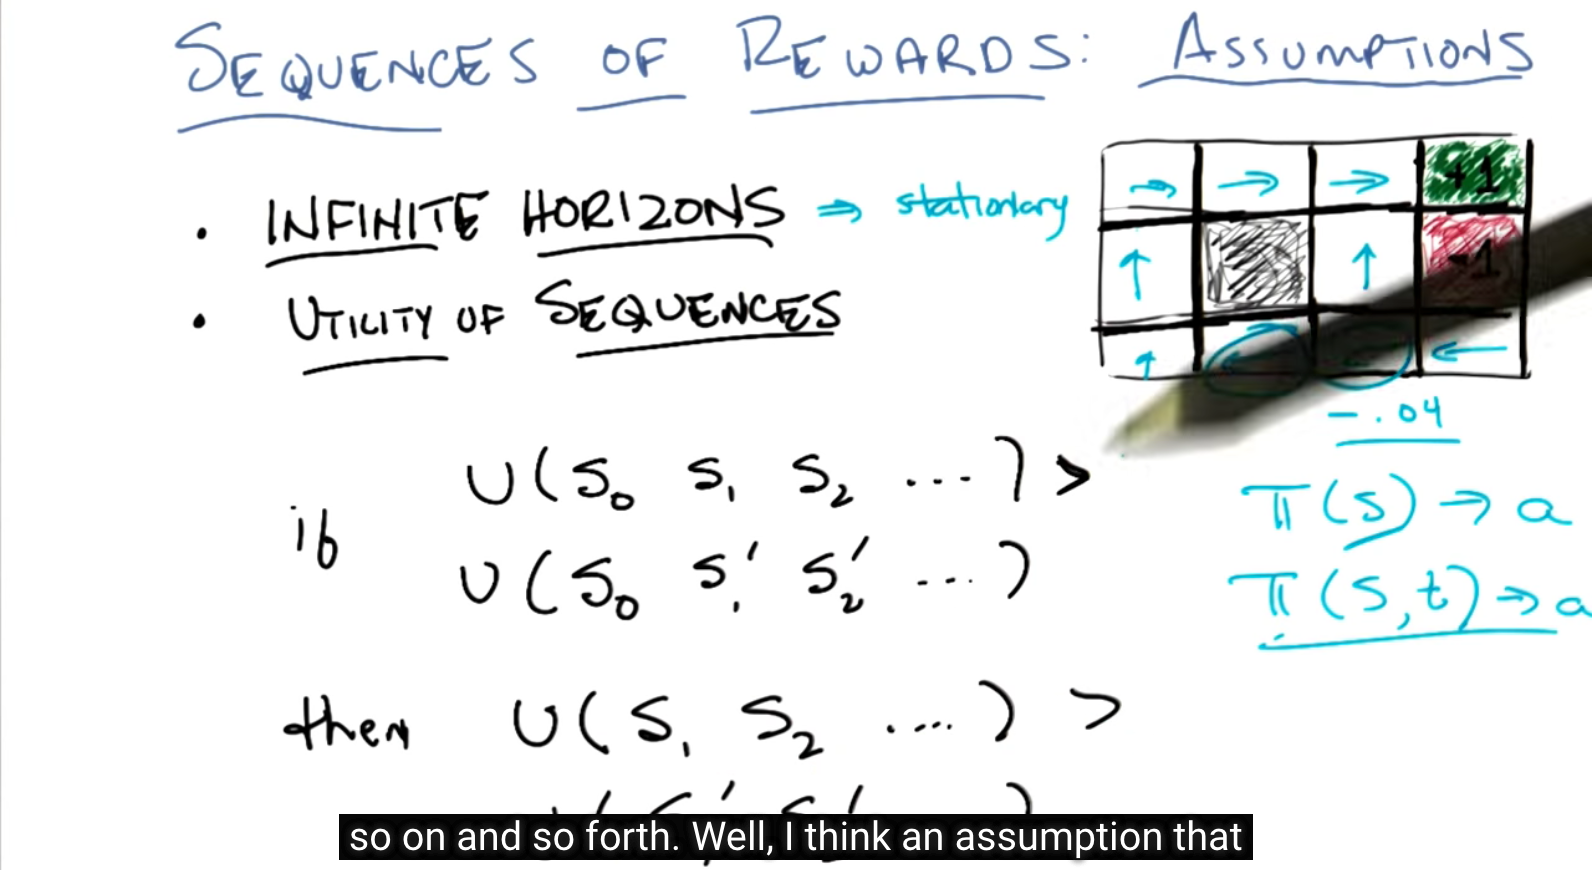 SEQUENCES OF REWARDS: ASSUMPTIONS
• INFINITE HORIZONS ⇒ stationary
• UTILITY OF SEQUENCES
→ → → +1
↑ ↑ -1
↑ ← ← ←
-.04
if U(S₀ S₁ S₂ ...) >
U(S₀ S₁′ S₂′ ...)
π(s) → a
π(s,t) → a
then U(S₁ S₂ ....) >
so on and so forth. Well, I think an assumption that